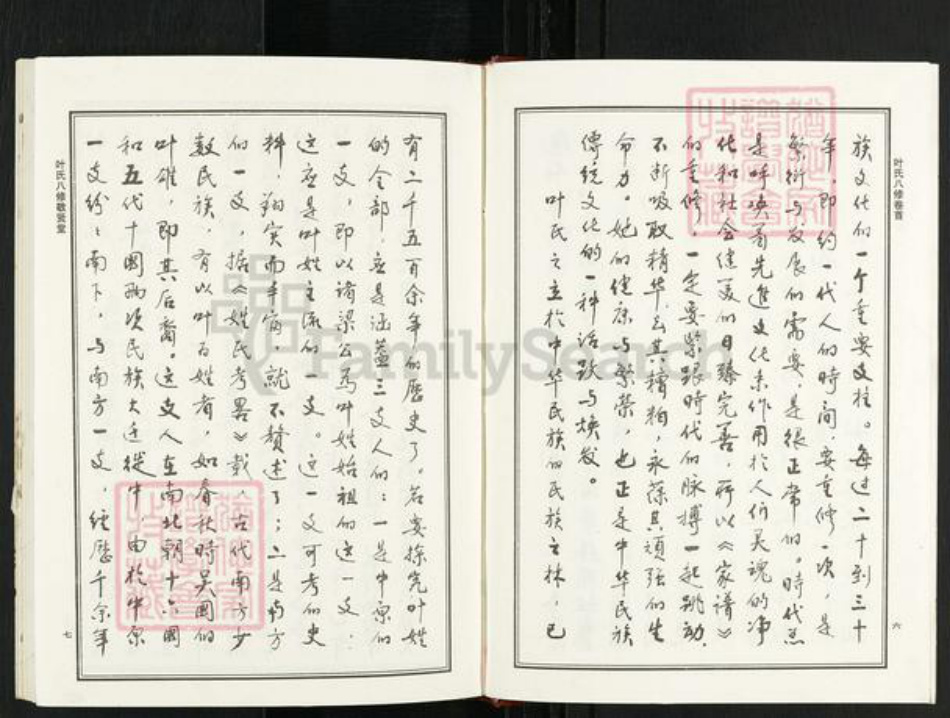 叶氏八修卷首
族文化的一个重要支柱。每过二十到三十
年，即约一代人的時间，要重修一次，是
繁衍与发展的需要，是很正常的。時代总
是呼唤着先進文化来作用於人们灵魂的净
化和社会健美的日臻完善，所以《家譜》
的重修，一定要紧跟時代的脉搏一起跳动，
不断吸取精华，去其糟粕，永葆其顽强的生
命力。她的健康与繁榮，也正是中华民族
傳統文化的一种活跃与焕发。
叶氏之立於中华民族的民族之林，已
六
有二千五百余年的歷史了。若要探究叶姓
的全部，应是涵蓋三支人的：一是中原的
一支，即以諸梁公為叶姓始祖的这一支：
这应是叶姓主流的一支。这一支可考的史
料，翔实而丰富，就不贅述了；二是南方
的一支，据《姓氏考畧》載，古代南方少
数民族，有以叶为姓者，如春秋時吴国的
叶雄，即其后裔。这支人在南北朝十六國
和五代十國兩次民族大迁徙中，由於中原
一支纷纷南下，与南方一支，经歷千余年
叶氏八修敬贤堂
七
FamilySearch